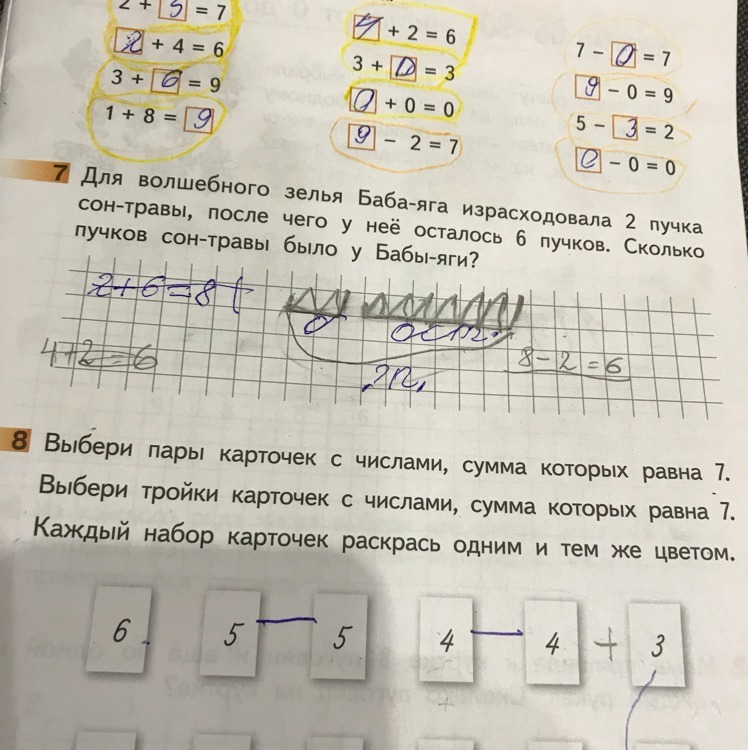 2 + 5 = 7
2 + 4 = 6
3 + 6 = 9
1 + 8 = 9
4 + 2 = 6
3 + 0 = 3
0 + 0 = 0
9 − 2 = 7
7 − 0 = 7
9 − 0 = 9
5 − 3 = 2
0 − 0 = 0
7 Для волшебного зелья Баба-яга израсходовала 2 пучка
сон-травы, после чего у неё осталось 6 пучков. Сколько
пучков сон-травы было у Бабы-яги?
2+6=8 (
ост.
4+2=6
8−2=6
?п.
8 Выбери пары карточек с числами, сумма которых равна 7.
Выбери тройки карточек с числами, сумма которых равна 7.
Каждый набор карточек раскрась одним и тем же цветом.
6 5 5 4 4 + 3